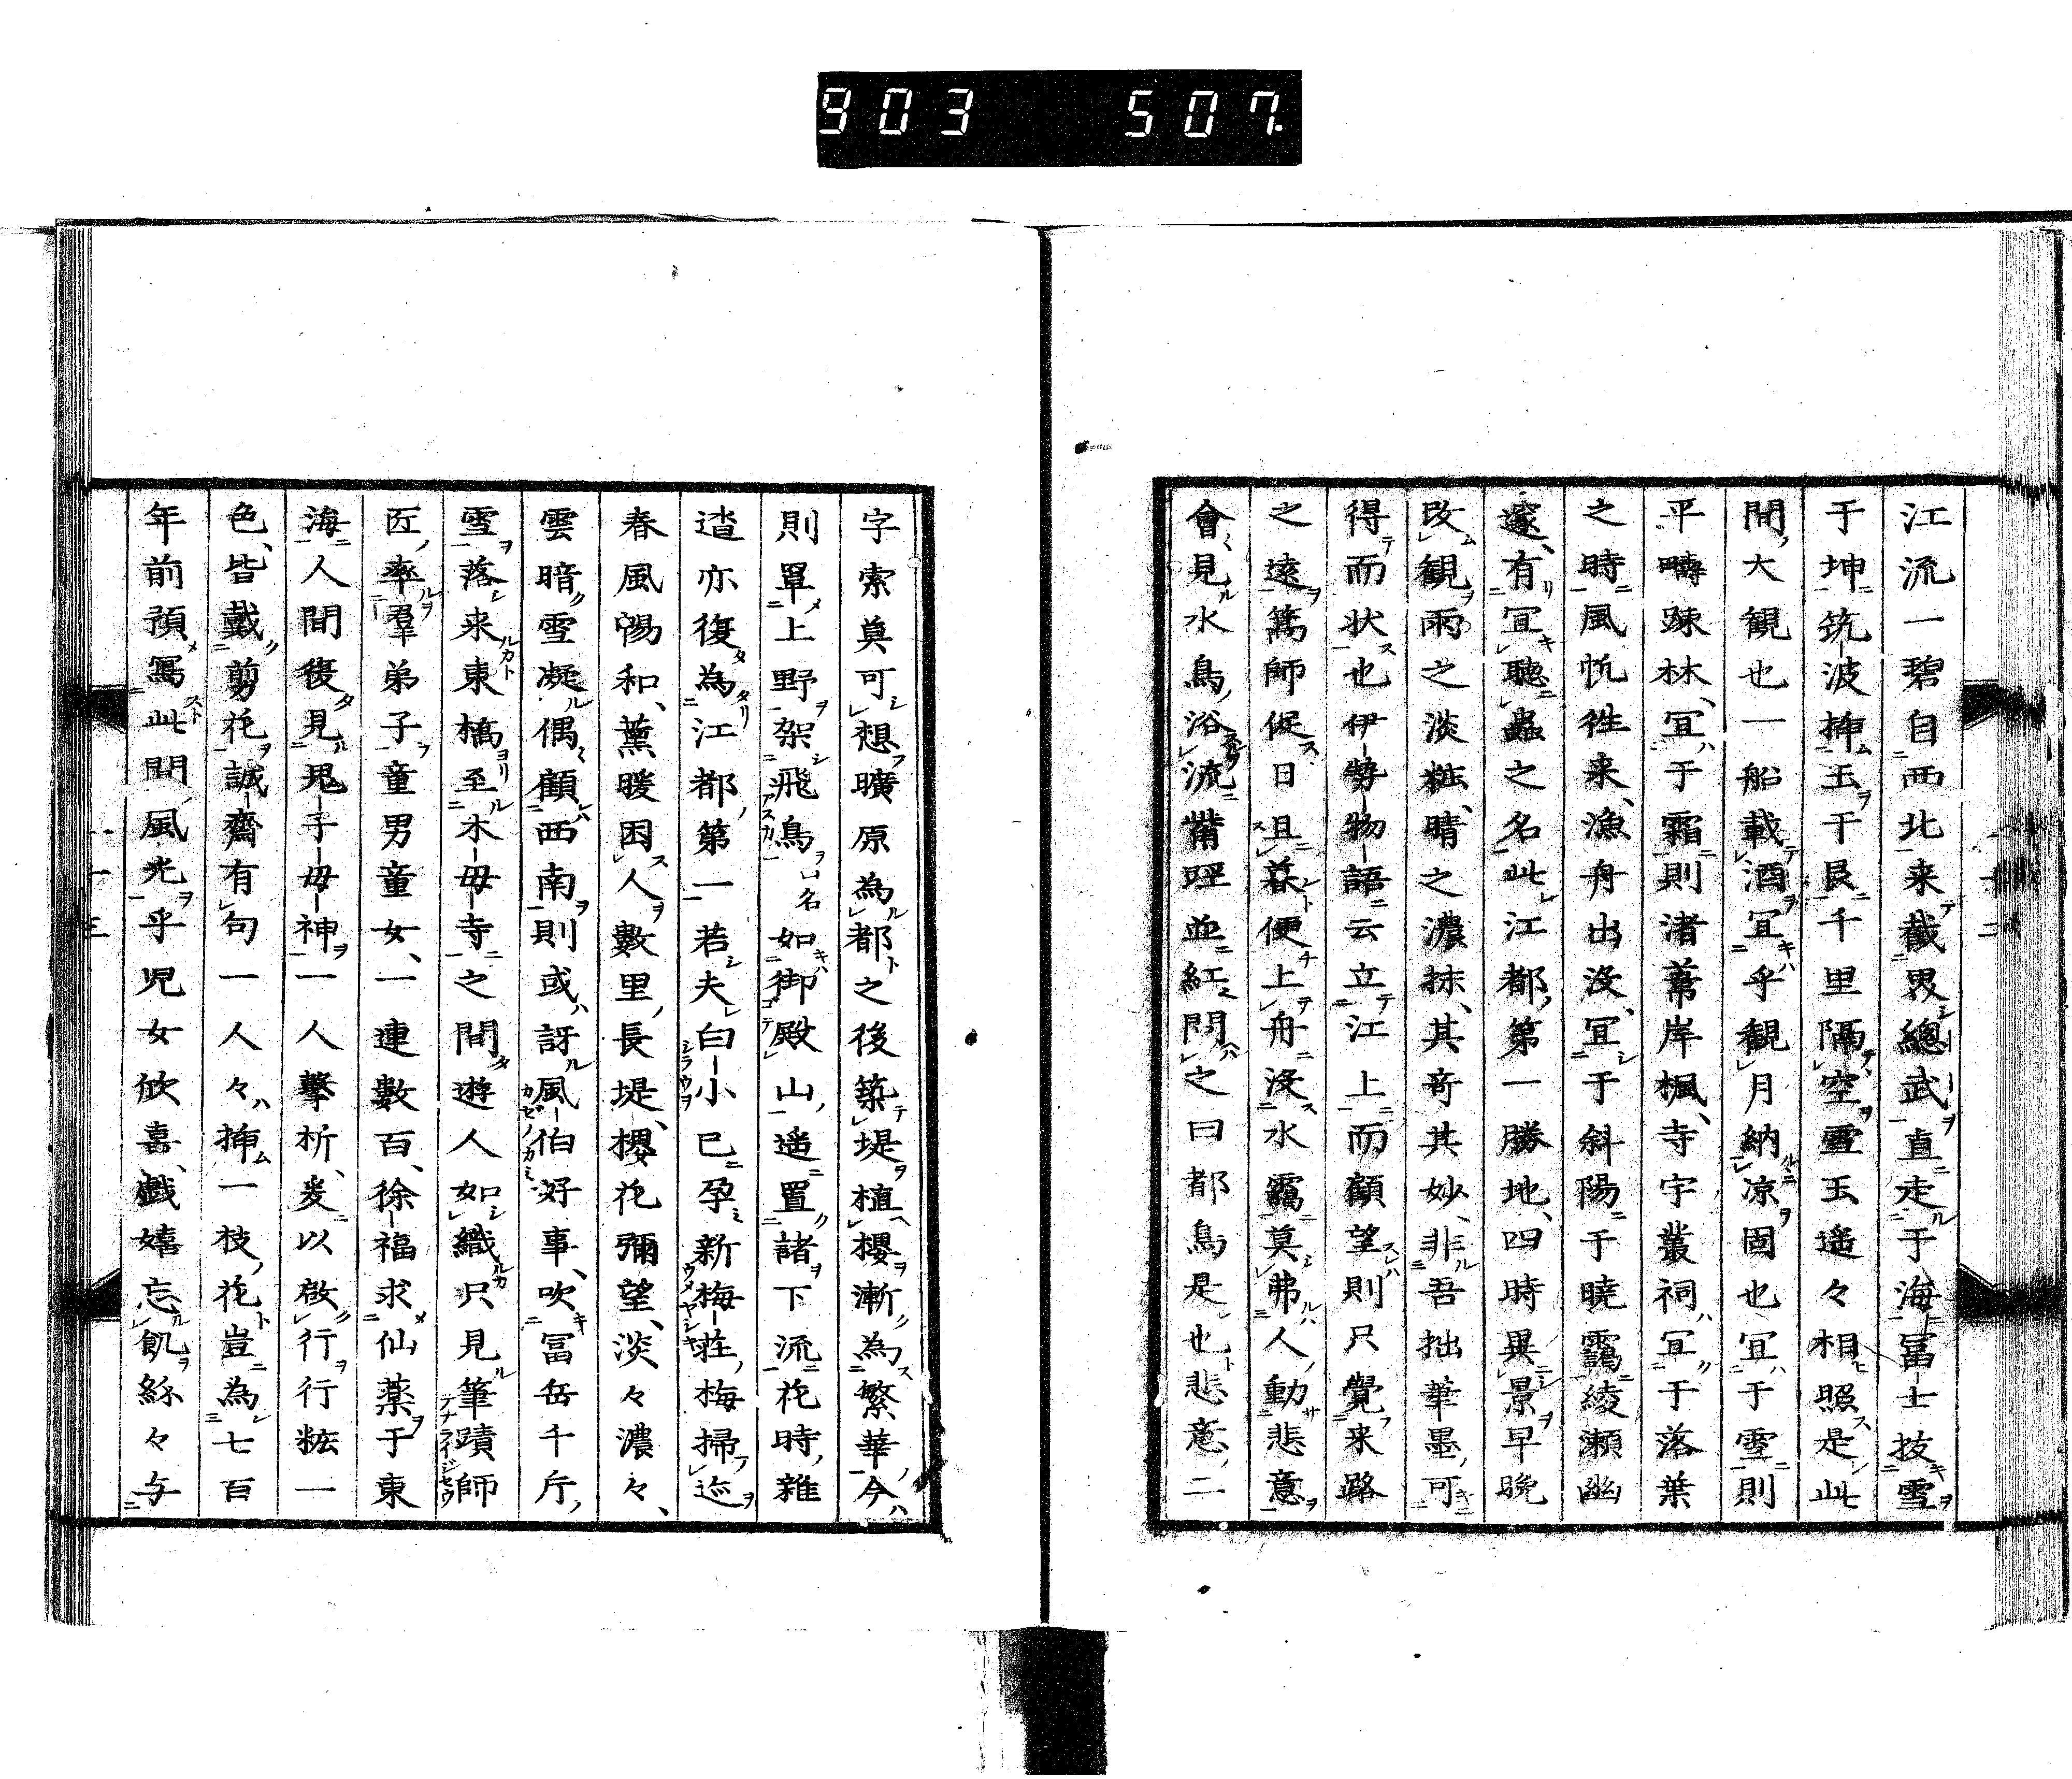 903 507.
江流一碧自西北来截界總武直走于海冨士抜雪
于坤筑波挿玉于艮千里隔空雪玉遥々相照是此
間大観也一船載酒冝乎観月納凉固也冝于雪則
平疇踈林冝于霜則渚葦岸楓寺宇叢祠冝于落葉
之時風帆徃来漁舟出没冝于斜陽于暁靄綾瀬幽
邃有冝聽蟲之名此江都第一勝地四時異景早晩
改観雨之淡粧晴之濃抹其竒其妙非吾拙筆墨可
得而状也伊勢物語云立江上而顧望則只覺来路
之遠篙師促日且暮便上舟没水靄莫弗人動悲意
會見水鳥浴流觜脛並紅問之曰都鳥是也悲意二
字索莫可想曠原為都之後築堤植櫻漸為繁華今
則罩上野架飛鳥山名如御殿山遥置諸下流花時雜
遝亦復為江都第一若夫白小已孕新梅荘梅掃迹
春風惕和薫暖困人數里長堤櫻花彌望淡々濃々
雲暗雪凝偶顧西南則或訝風伯好事吹冨岳千斤
雪落来東橋至木母寺之間遊人如織只見筆蹟師
匠率羣弟子童男童女一連數百徐福求仙薬于東
海人間復見鬼子母神一人撃柝爰以啟行行粧一
色皆戴剪花誠齋有句一人々挿一枝花豈為七百
年前預冩此間風光乎児女欣喜戯嬉忘飢紛々与